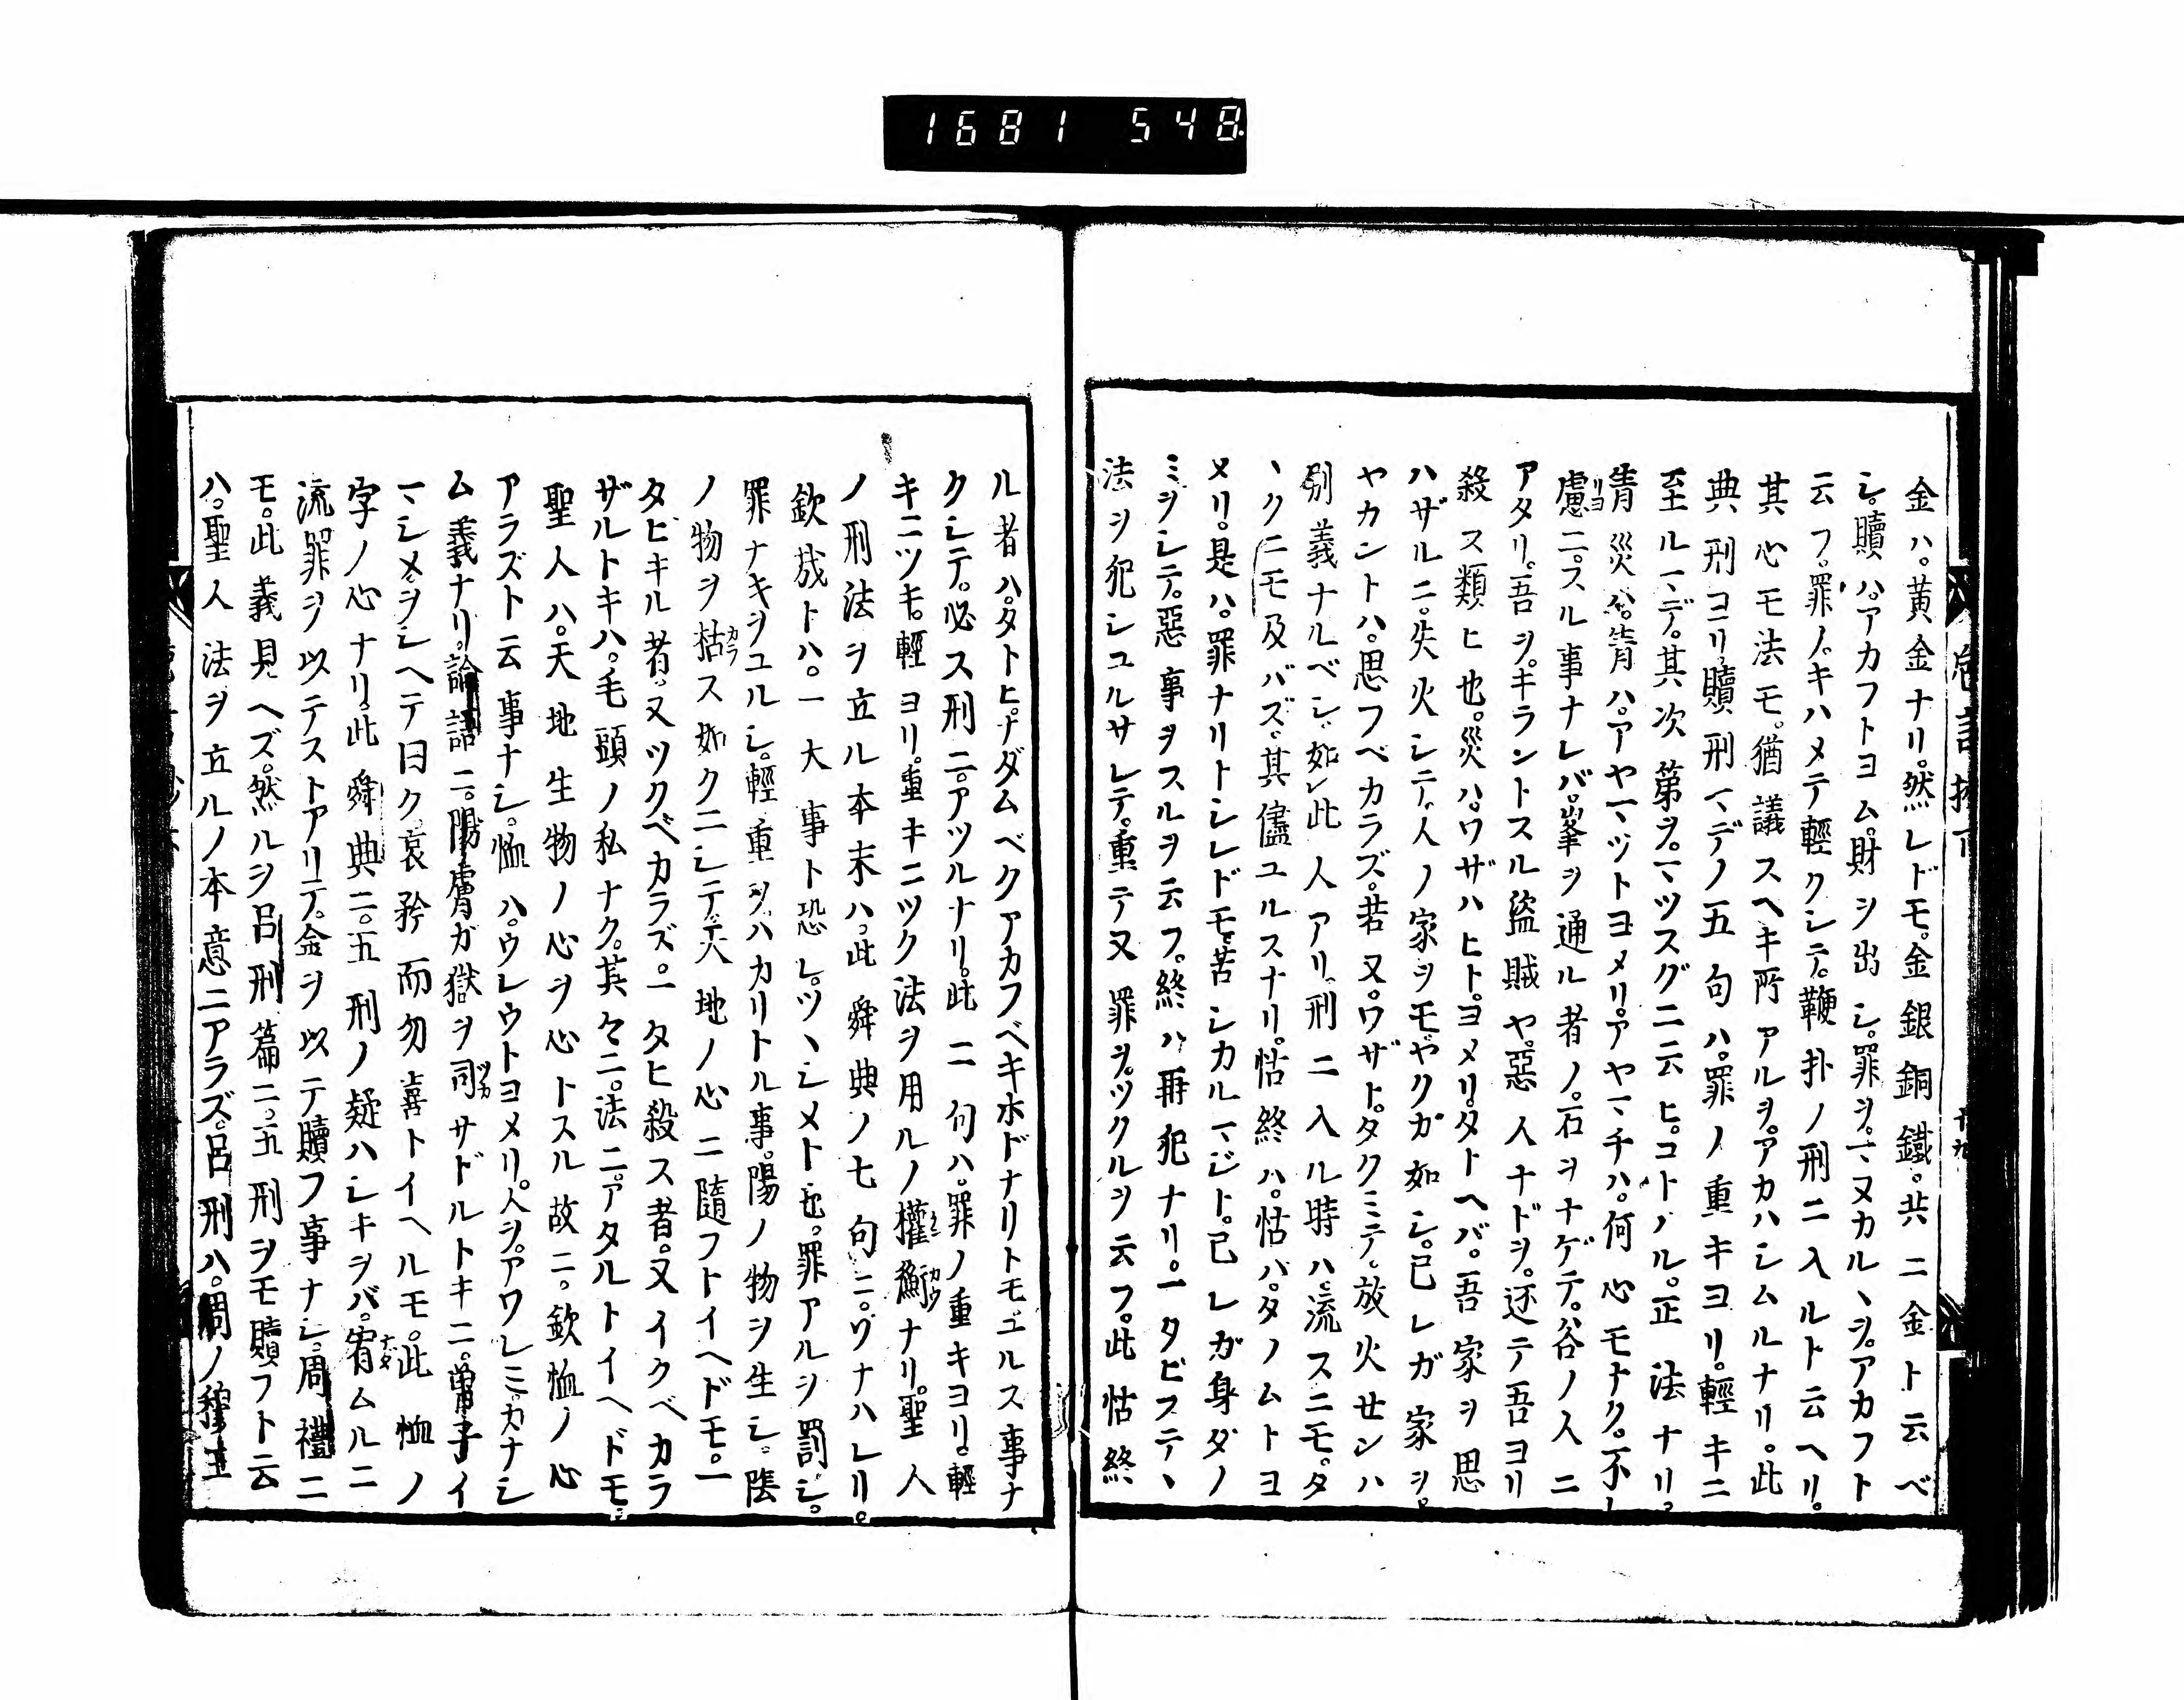 1681 548
金ハ。黄金ナリ。然レドモ。金銀銅鐵。共ニ金ト云ベ
シ。贖ハ。アカフトヨム。財ヲ出シ。罪ヲ。マヌカルヽヲ。アカフト
云フ。罪ノ。キハメテ輕クシテ。鞭扑ノ刑ニ入ルト云ヘリ。
其心モ法モ。猶議スヘキ所アルヲ。アカハシムルナリ。此
典刑ヨリ。贖刑マデノ五句ハ。罪ノ重キヨリ。輕キニ
至ルマデ。其次第ヲ。マツスグニ云ヒ。コトハル。正法ナリ。
眚災ハ。眚ハ。アヤマツトヨメリ。アヤマチハ。何心モナク。不
慮ニ。スル事ナレバ。峯ヲ通ル者ノ。石ヲナゲテ。谷ノ人ニ
アタリ。吾ヲ。キラントスル盜賊ヤ。惡人ナドヲ。还テ吾ヨリ
殺ス類ヒ也。災ハ。ワザハヒト。ヨメリ。タトヘバ。吾家ヲ思
ハザルニ。失火シテ。人ノ家ヲモヤクガ如シ。已レガ家ヲ。
ヤカントハ。思フベカラズ。若又。ワザト。タクミテ。放火センハ
別義ナルベシ。如此人アリ。刑ニ入ル時ハ。流スニモ。タ
ヽクニモ及バズ。其儘ユルスナリ。怙終ハ。怙バ。タノムトヨ
メリ。是ハ。罪ナリトシレドモ。苦シカルマジト。已レガ身ダノ
ミヲシテ。惡事ヲスルヲ云フ。終ハ再犯ナリ。一タビステヽ
法ヲ犯シユルサレテ。重テ又罪ヲ。ツクルヲ云フ。此怙終
ル者ハ。タトヒ。ナダムベクアカフベキホドナリトモユルス事ナ
クシテ。必ス刑ニ。アツルナリ。此二句ハ。罪ノ重キヨリ。輕
キニツキ。輕ヨリ。重キニツク法ヲ用ルノ權衡ナリ。聖人
ノ刑法ヲ立ル本末ハ。此舜典ノ七句ニ。ヲナハレリ。
欽哉トハ。一大事ト恐レ。ツヽシメト也。罪アルヲ罰シ。
罪ナキヲユルシ。輕重ヲ。ハカリトル事。陽ノ物ヲ生シ。陰
ノ物ヲ枯ス如クニシテ。天地ノ心ニ隨フトイヘドモ。一
タビキル者。又ツクベカラズ。一タヒ殺ス者。又イクベカラ
ザルトキハ。毛頭ノ私ナク。其々ニ。法ニ。アタルトイヘドモ。
聖人ハ。天地生物ノ心ヲ心トスル故ニ。欽恤ノ心
アラズト云事ナシ。恤ハ。ウレウトヨメリ。人ヲ。アワレミ。カナシ
ム義ナリ。論語ニ。陽膚ガ獄ヲ司サドルトキニ。曾子イ
マシメヲシヘテ曰ク。哀矜而勿喜トイヘルモ。此恤ノ
字ノ心ナリ。此舜典ニ。五刑ノ疑ハシキヲバ。宥ムルニ
流罪ヲ以テストアリテ。金ヲ以テ贖フ事ナシ。周禮ニ
モ。此義見ヘズ。然ルヲ呂刑篇ニ。五刑ヲモ贖フト云
ハ。聖人法ヲ立ルノ本意ニアラズ。呂刑ハ。周ノ穆王